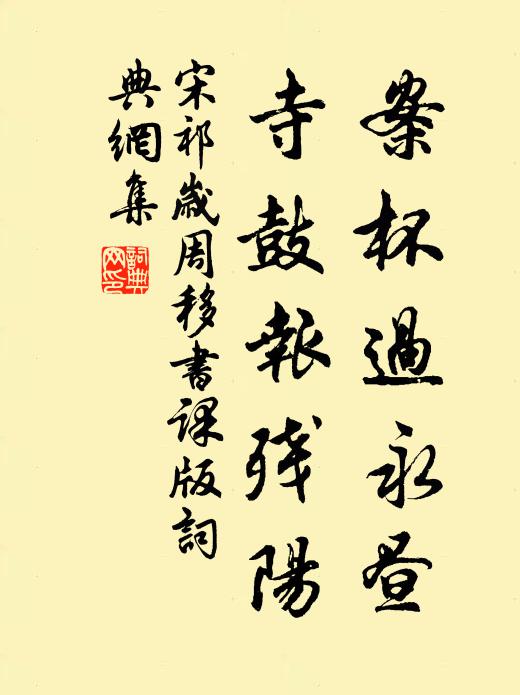 案杯過永晝
寺鼓報残陽
宋祁歲周移書課版詞
典網集
詞典網印